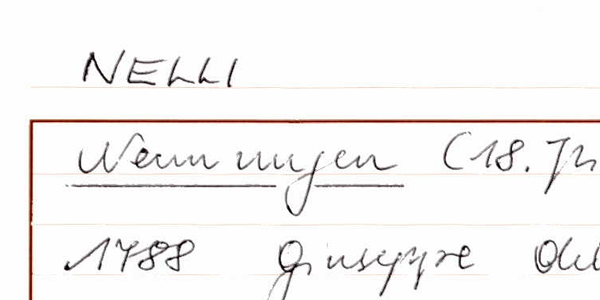 NELLI
Nennungen (18. Jh
1788 Giuseppe